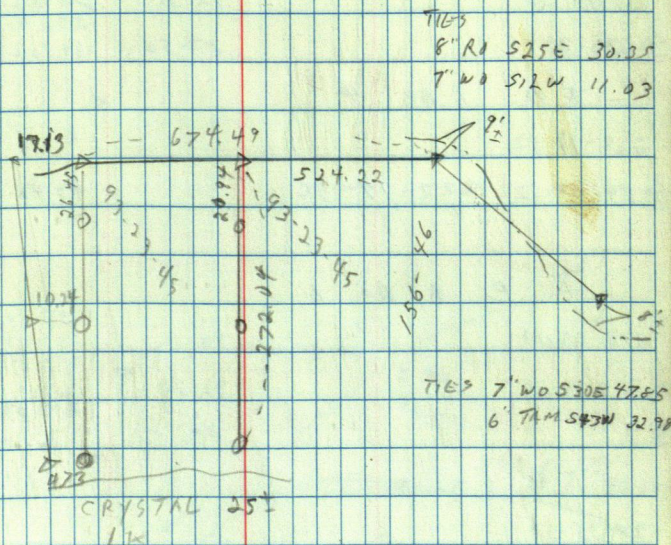 TIES
8" RO S25E 30.35
7" WO S12W 11.03
17.13
674.49
9'±
524.22
26.45
20.94
93-23-45
93-23-45
156-46
272.04
10.24
8'±
TIES 7" WO S30E 47.85
6" TAM S43W 32.98
4.73
CRYSTAL 25±
LK